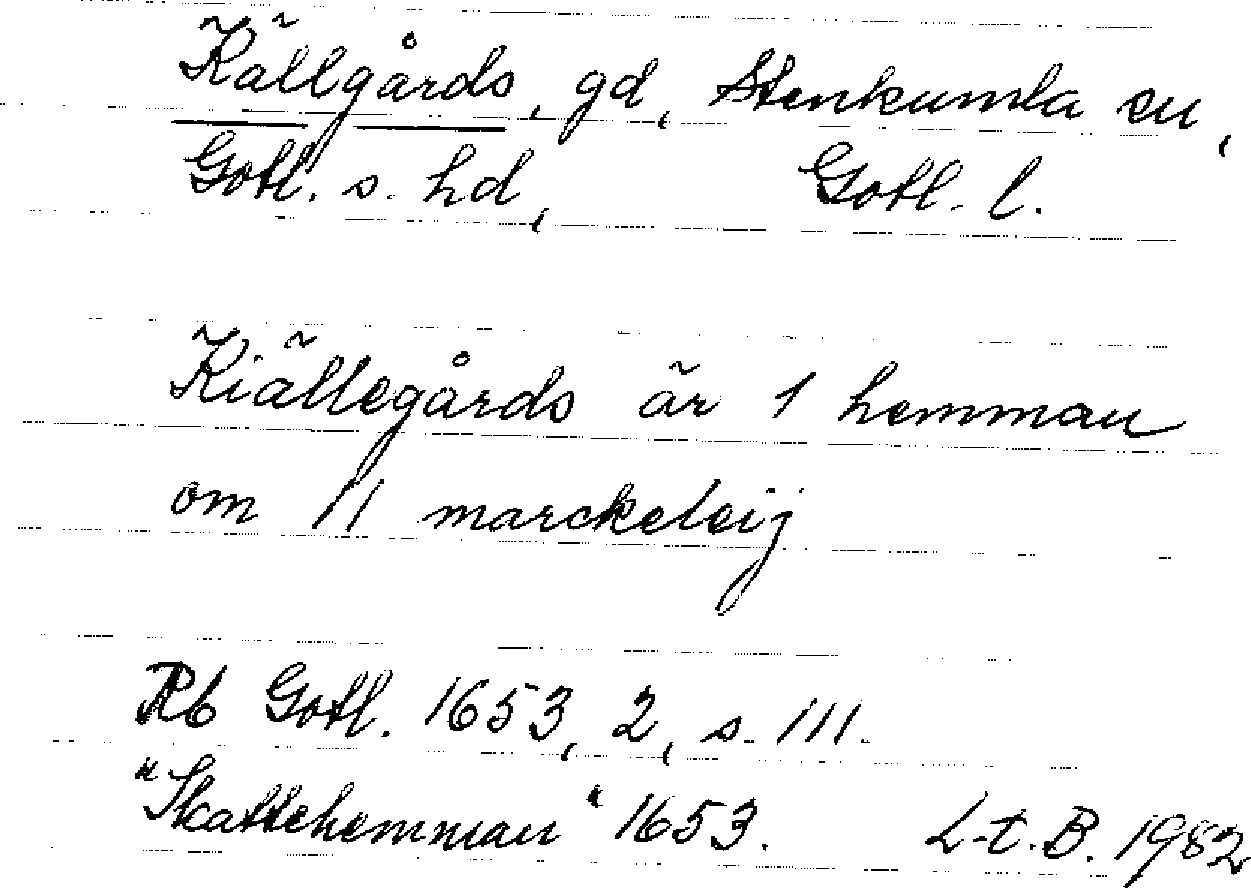 Källgårds, gd, Stenkumla sn,
Gotl. s. hd, Gotl. l.
Kiällegårds är 1 hemman
om 11 marckeleij
Rb Gotl. 1653, 2, s. 111.
"Skattehemman" 1653. L-t. B. 1982